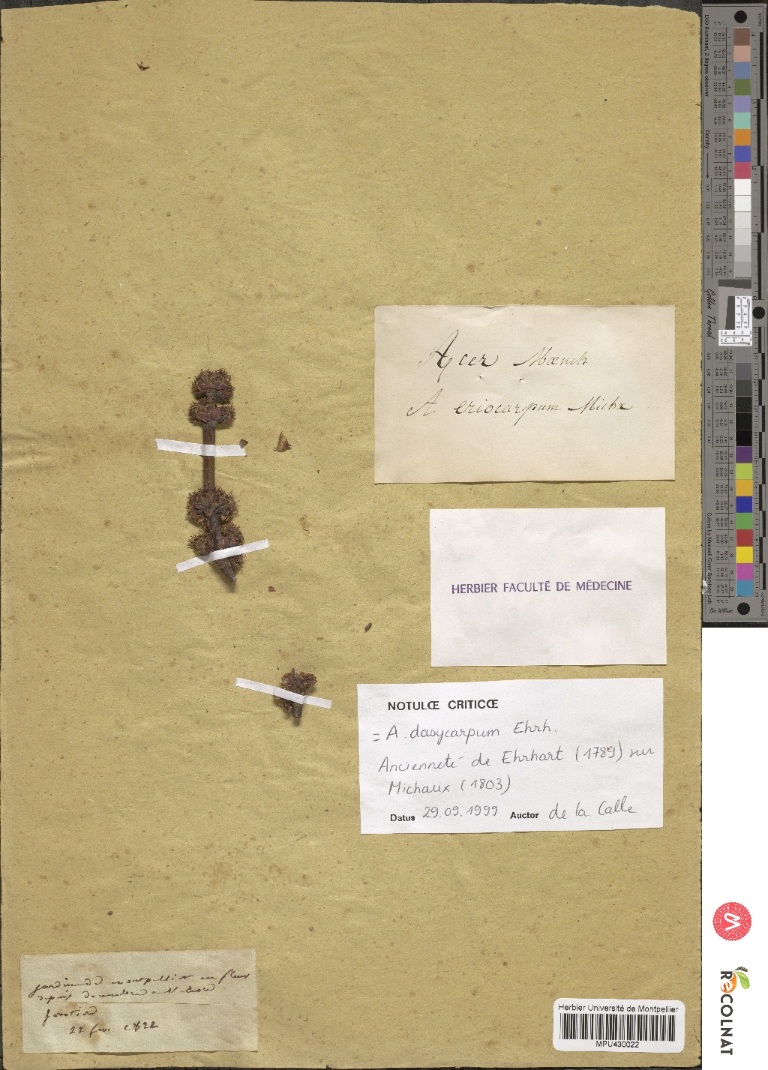 Acer Mœnch
A eriocarpum Michx
HERBIER FACULTÉ DE MÉDECINE
NOTULŒ CRITICŒ
= A. dasycarpum Ehrh.
Ancienneté de Ehrhart (1789) sur
Michaux (1803)
Datus 29.09.1999 Auctor de la Calle
jardin de montpellier en fleur
depuis
22 1822
Herbier Université de Montpellier
MPU430022
RECOLNAT